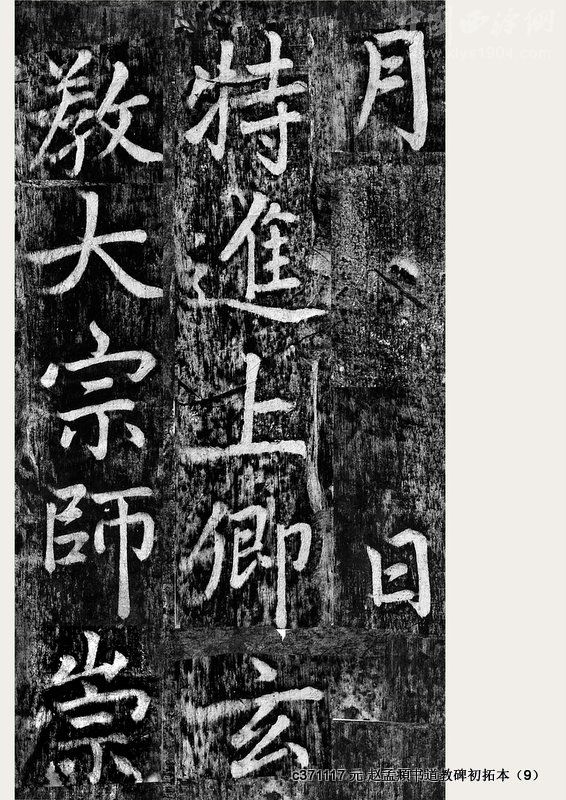 月日
特進上卿玄
教大宗師崇
c371117.元.赵孟頫书道教碑初拓本（9）
www.xlys1904.com